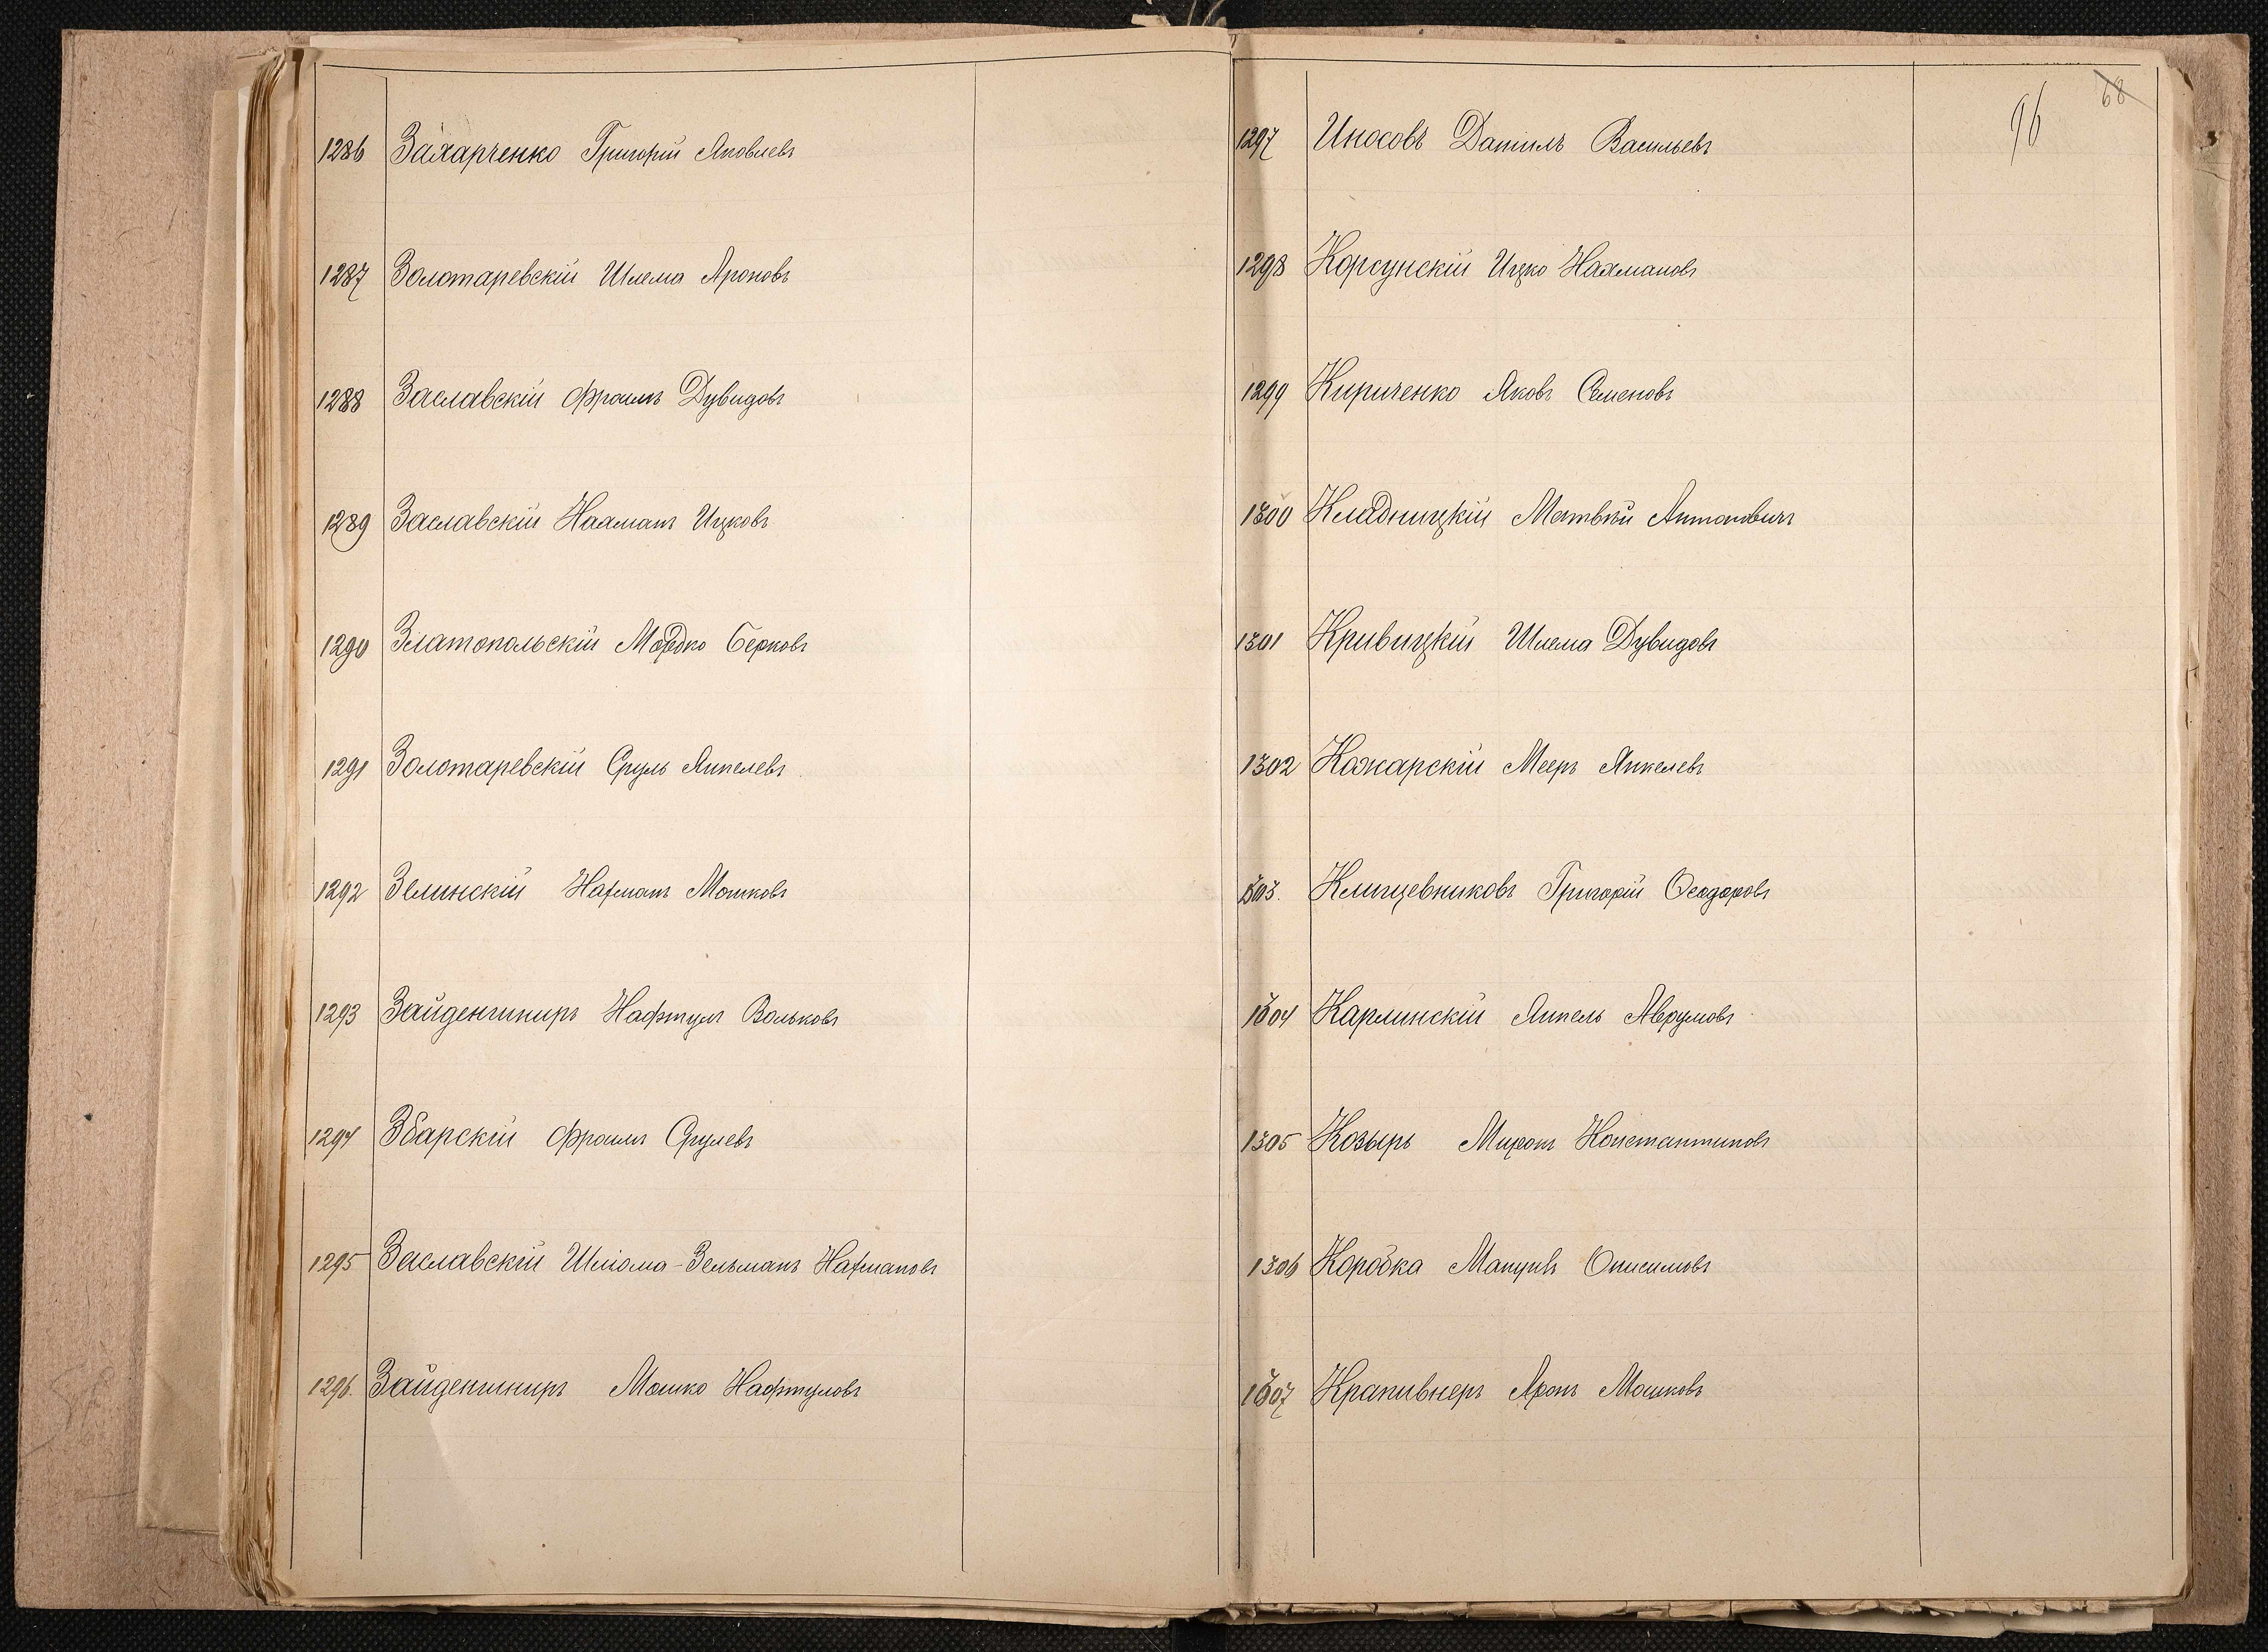 1286 Захарченко Григорій Яковлевъ
1287 Золотаревскій Шлема Ароновъ
1288 Заславскій Фроимъ Дувидовъ
1289 Заславскій Нахманъ Ицковъ
1290 Златопольскій Мордко Берковъ
1291 Золотаревскій Сруль Янкелевъ
1292 Зелинскій Нахманъ Мошковъ
1293 Зайденшниръ Нафтулъ Вольковъ
1294 Збарскій Фроимъ Срулевъ
1295 Заславскій Шлёма-Зельманъ Нахмановъ
1296. Зайденшниръ Мошко Нафтуловъ
96 68
1297 Иносовъ Даніилъ Васильевъ
1298 Корсунскій Ицко Нахмановъ
1299 Кириченко Яковъ Семеновъ
1300 Кладницкій Матвѣй Антоновичъ
1301 Кривицкій Шлема Дувидовъ
1302 Кожарскій Мееръ Янкелевъ
1303. Клищевниковъ Григорій Ѳеодоровъ
1304 Карлинскій Янкель Аврумовъ
1305 Козырь Миронъ Константиновъ
1306 Коробка Мануилъ Онисимовъ
1307 Крапивнеръ Аронъ Мошковъ